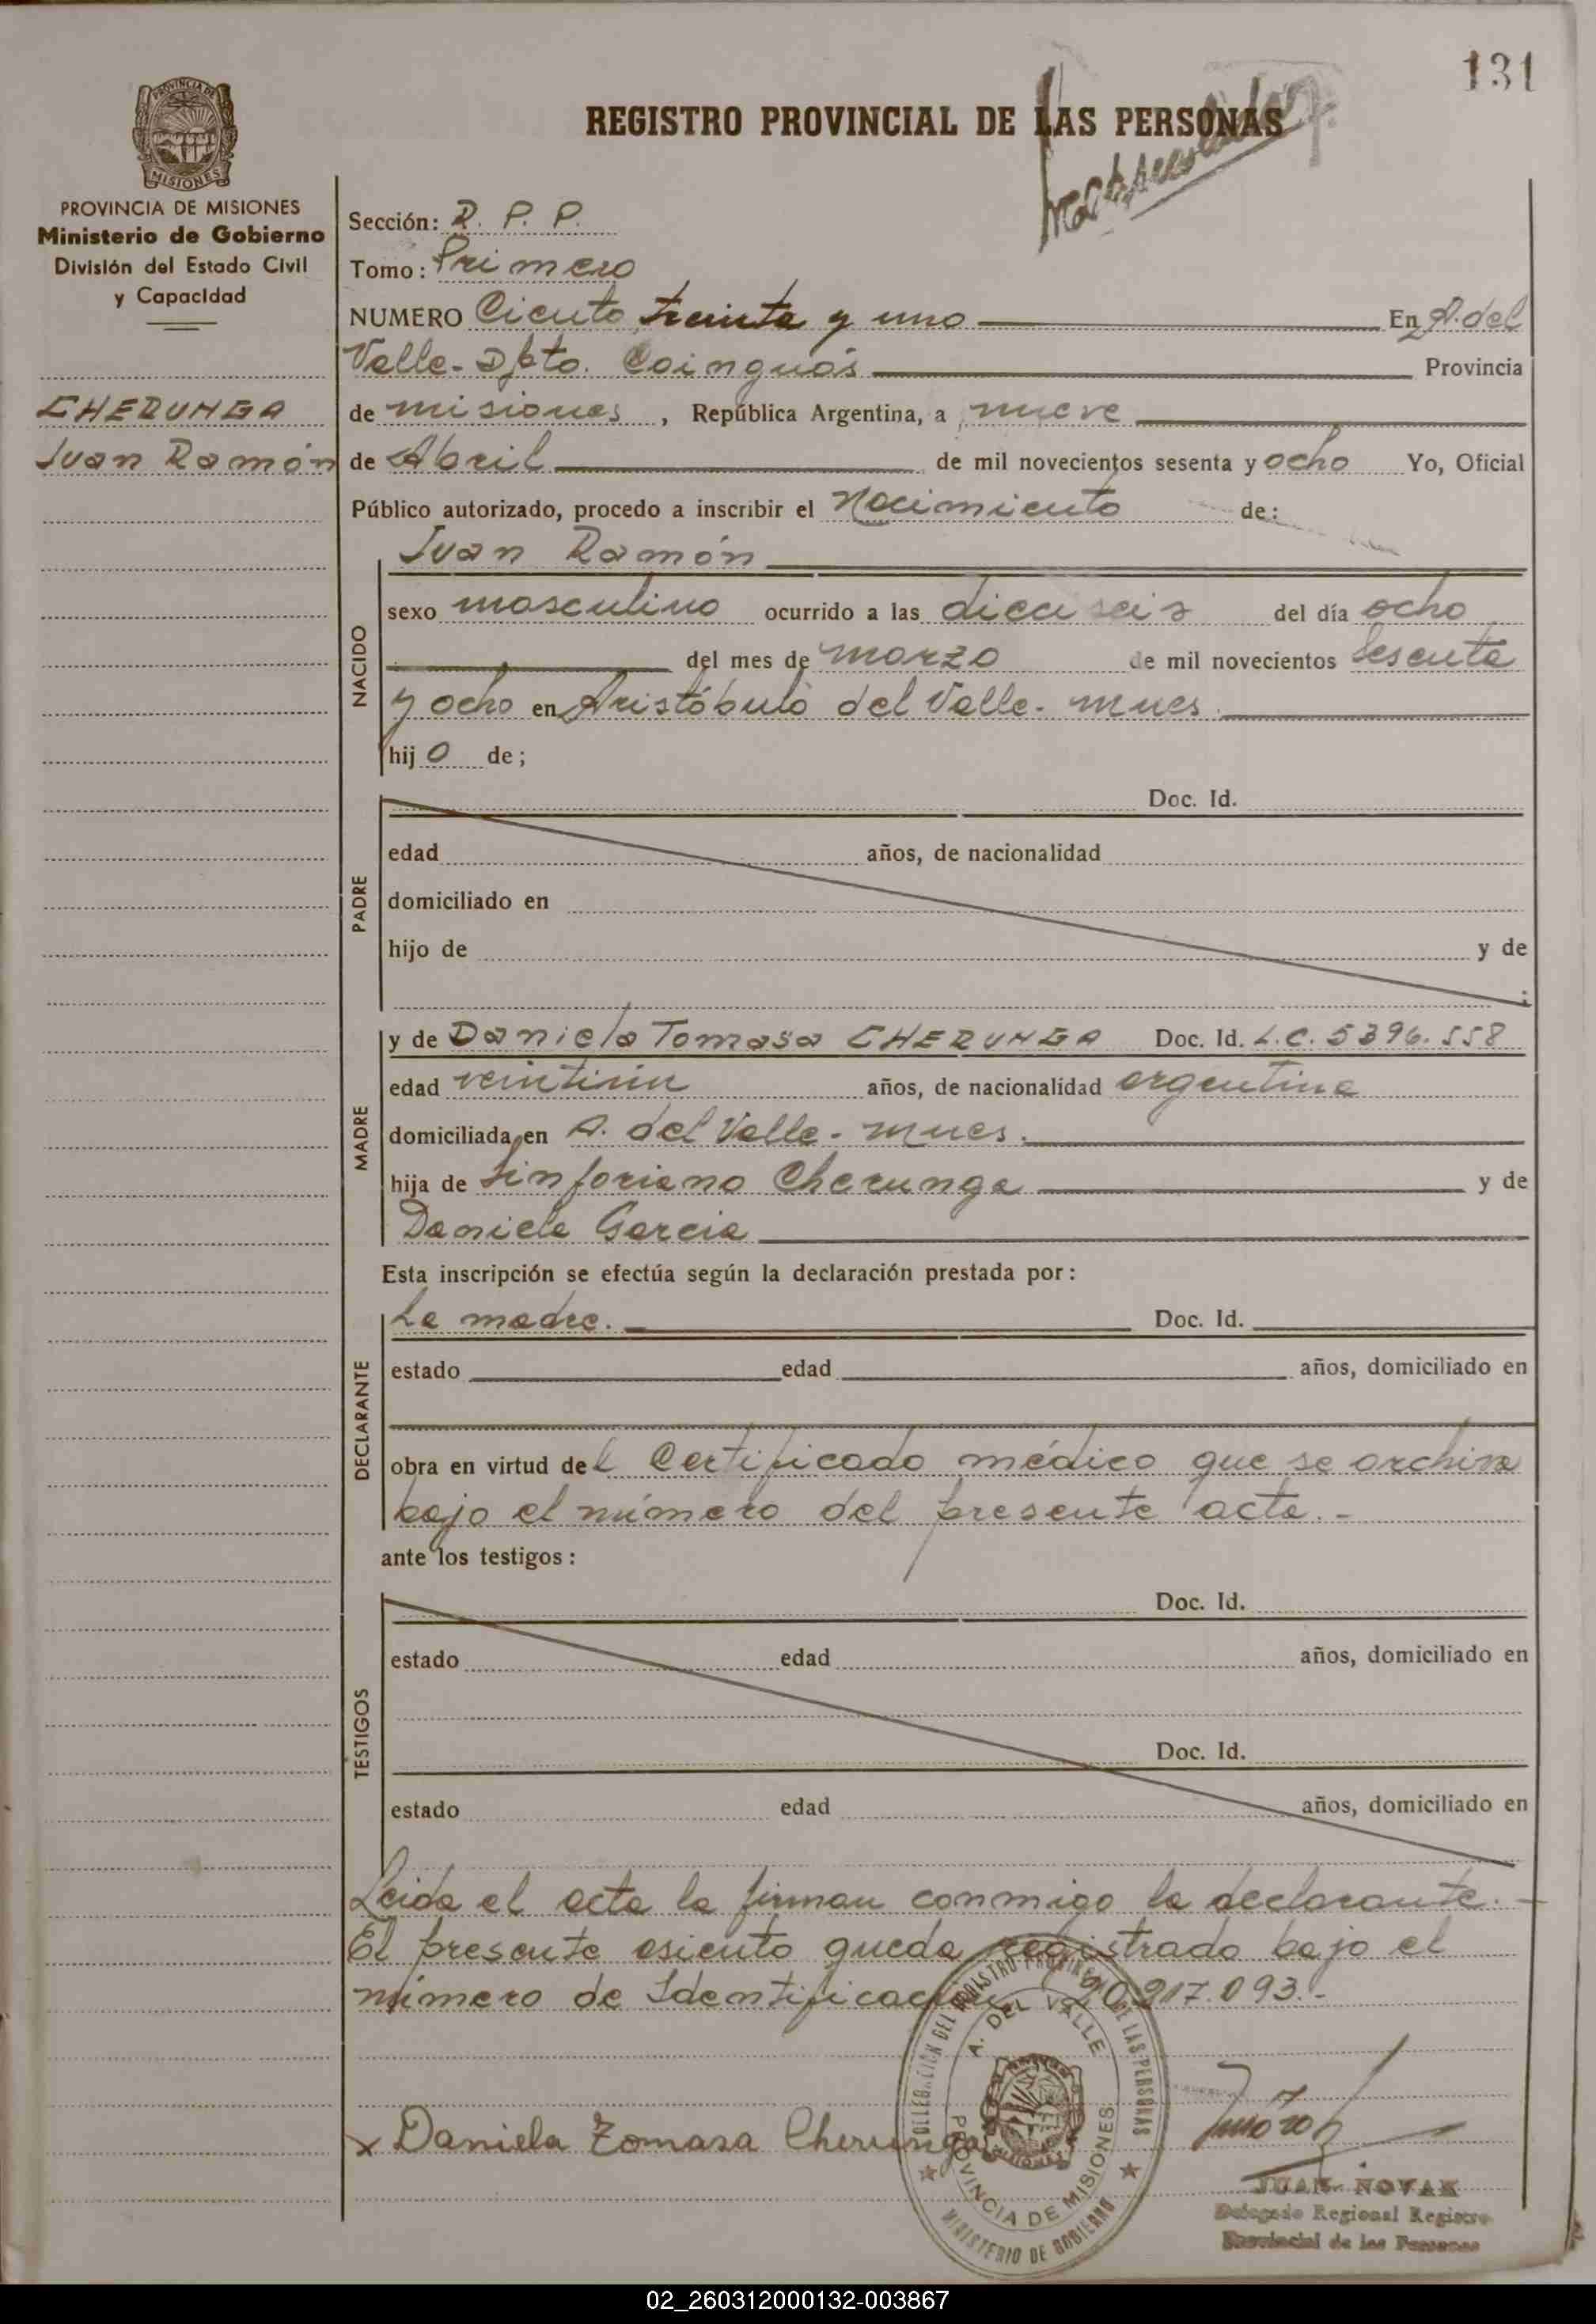 131
REGISTRO PROVINCIAL DE LAS PERSONAS
PROVINCIA DE MISIONES
PROVINCIA DE MISIONES
Ministerio de Gobierno
División del Estado Civil
y Capacidad
CHERUNGA
Juan Ramón
Sección: R. P. P.
Tomo: Primero
NUMERO Ciento treinta y uno En A. del
Valle - Dpto. Cainguás Provincia
de misiones, República Argentina, a nueve
de Abril de mil novecientos sesenta y ocho Yo, Oficial
Público autorizado, procedo a inscribir el Nacimiento de:
Juan Ramón
NACIDO
sexo masculino ocurrido a las dieciseis del día ocho
del mes de marzo de mil novecientos sesenta
y ocho en Aristóbulo del Valle - mnes.
hijo de;
PADRE
Doc. Id.
edad años, de nacionalidad
domiciliado en
hijo de y de
;
MADRE
y de Daniela Tomasa CHERUNGA Doc. Id. L.C. 5396.558
edad años, de nacionalidad argentina
domiciliada en A. del Valle - mnes.
hija de Sinforiano Cherunga y de
Daniela Garcia
Esta inscripción se efectúa según la declaración prestada por:
DECLARANTE
La madre. Doc. Id.
estado edad años, domiciliado en
obra en virtud del Certificado médico que se archiva
bajo el número del presente acta.-
ante los testigos:
TESTIGOS
Doc. Id.
estado edad años, domiciliado en
Doc. Id.
estado edad años, domiciliado en
Leida el acta la firman conmigo la declarante.-
El presente asiento queda registrado bajo el
número de Identificación 20.217.093.-
DELEGACIÓN DEL REGISTRO PROVINCIAL DE LAS PERSONAS
A. DEL VALLE
PROVINCIA DE MISIONES
MINISTERIO DE GOBIERNO
x Daniela Tomasa Cherunga
JUAN NOVAK
Delegado Regional Registro
Provincial de las Personas
02_260312000132-003867